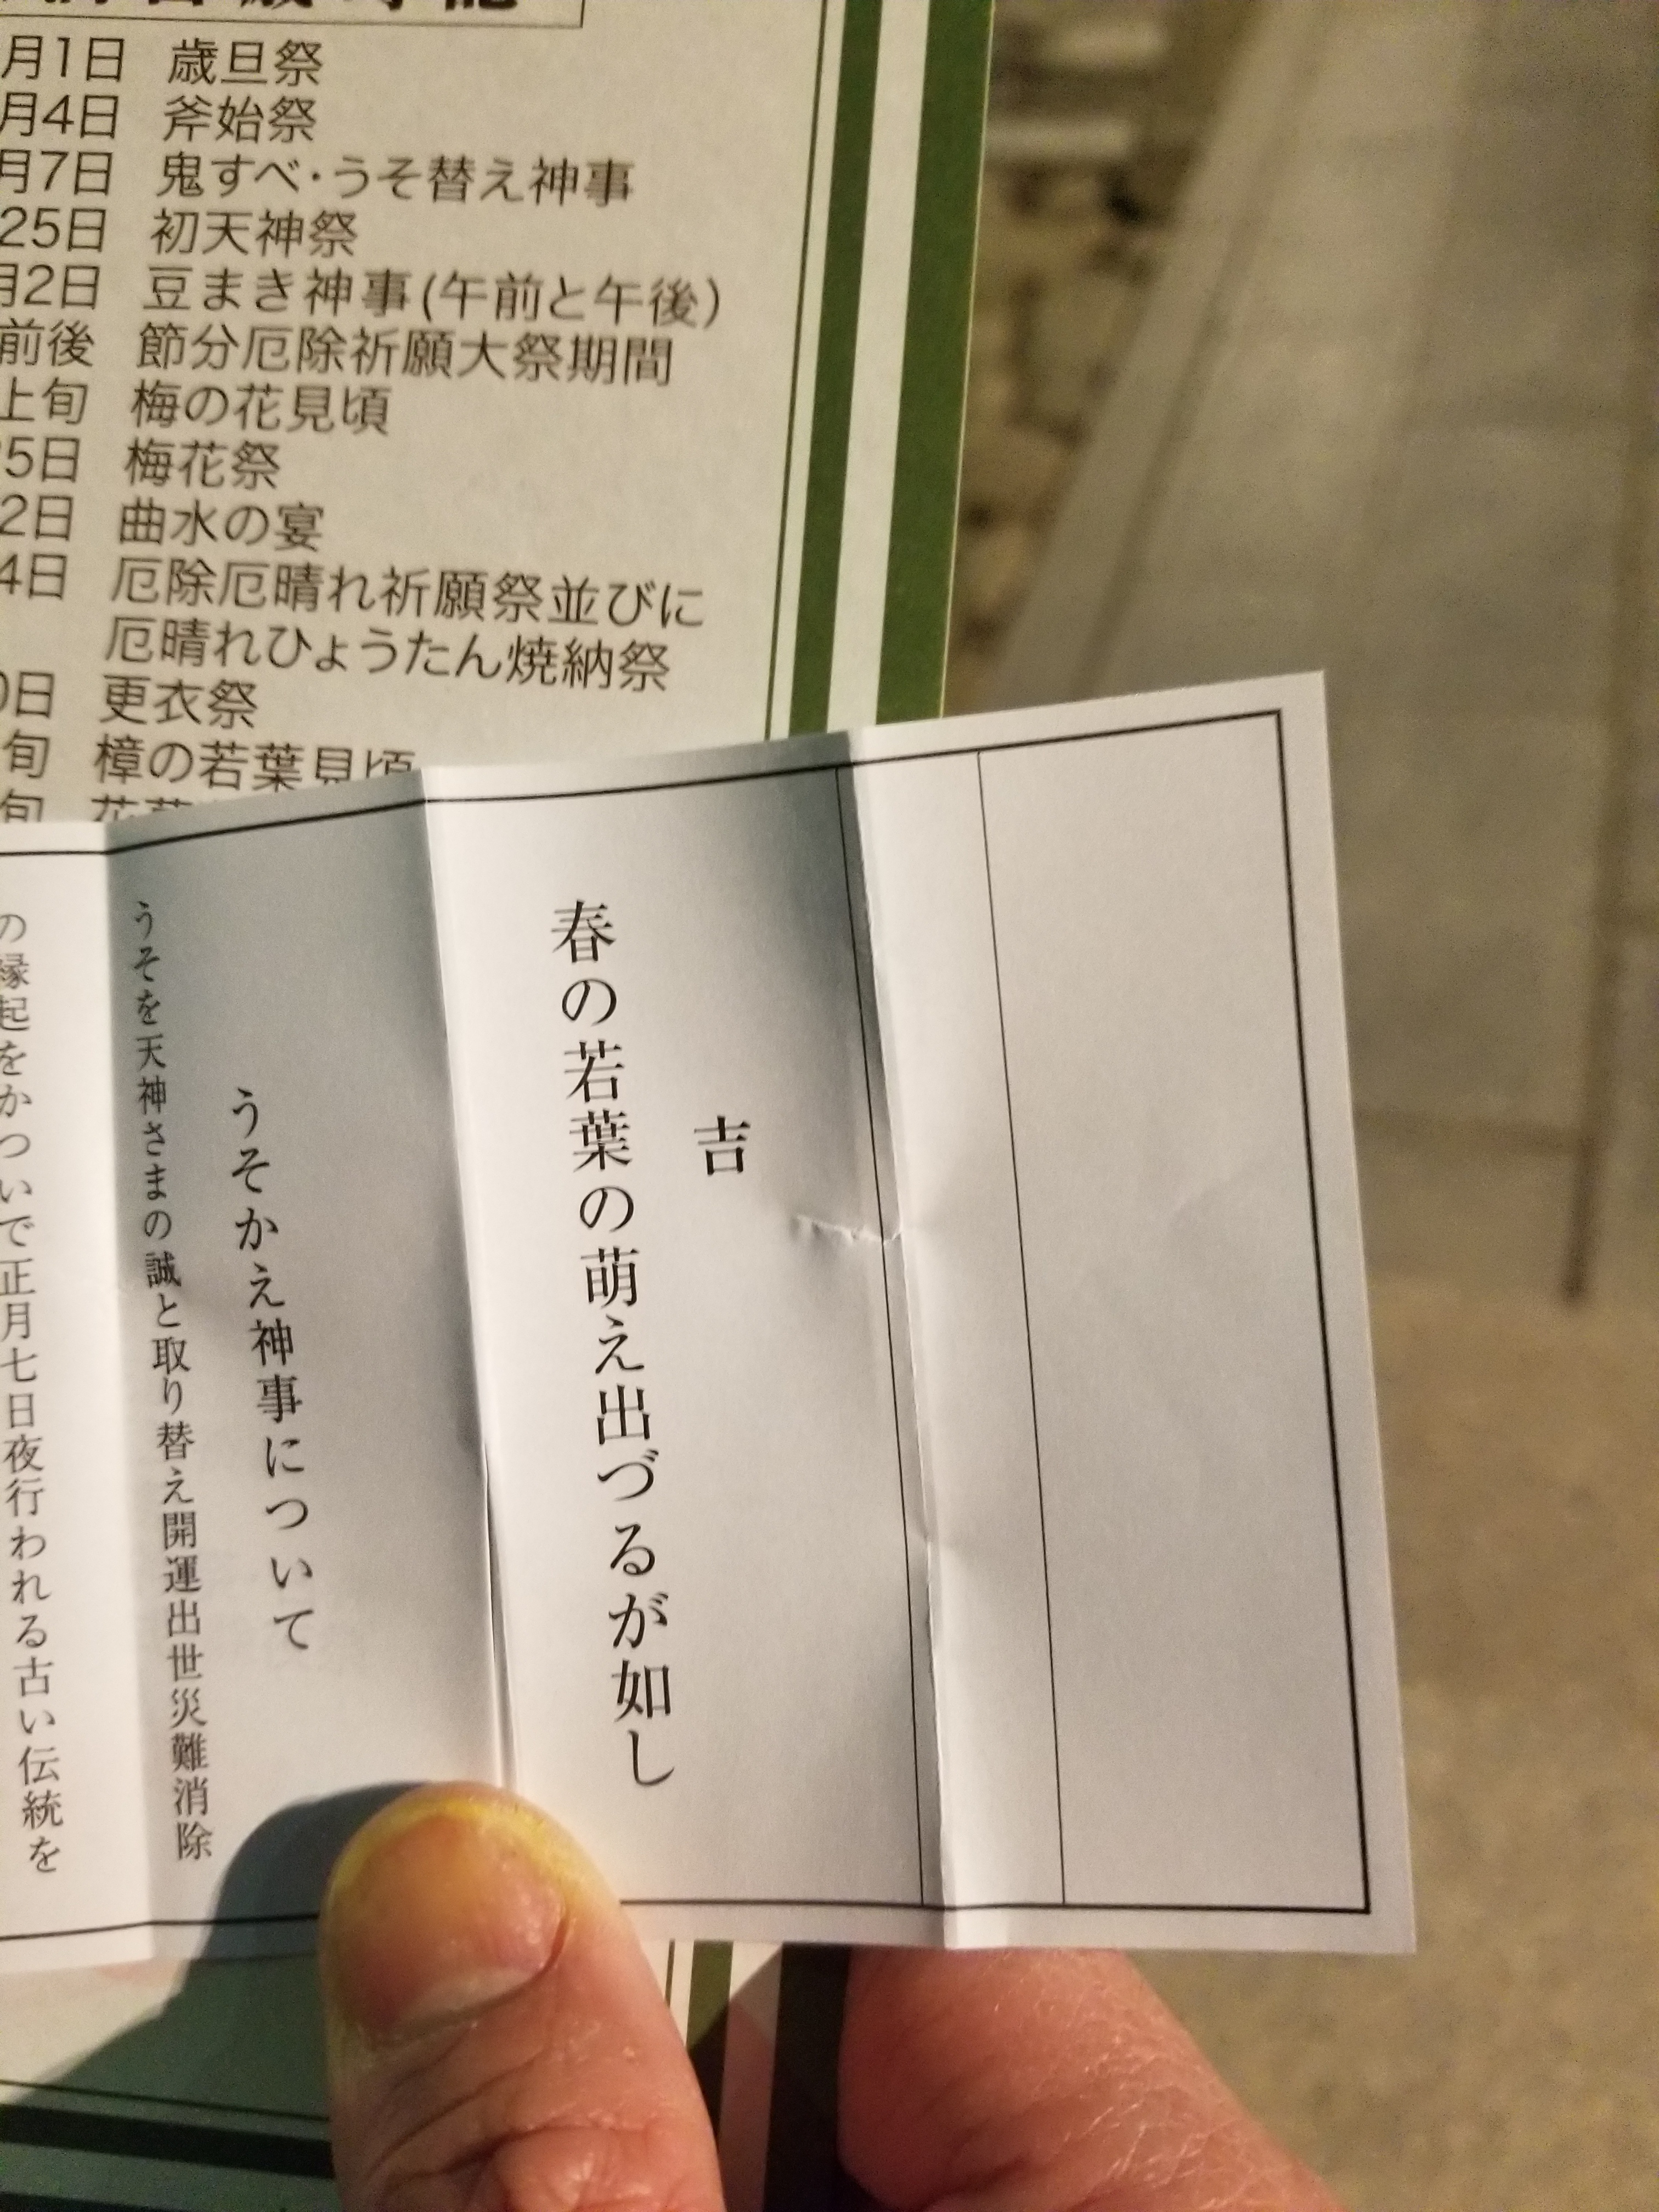 月1日 歳旦祭
月4日 斧始祭
月7日 鬼すべ・うそ替え神事
25日 初天神祭
月2日 豆まき神事(午前と午後)
前後 節分厄除祈願大祭期間
上旬 梅の花見頃
5日 梅花祭
2日 曲水の宴
4日 厄除厄晴れ祈願祭並びに
厄晴れひょうたん焼納祭
0日 更衣祭
旬 樟の若葉見頃
旬
吉
春の若葉の萌え出づるが如し
うそかえ神事について
うそを天神さまの誠と取り替え開運出世災難消除
の縁起をかついで正月七日夜行われる古い伝統を